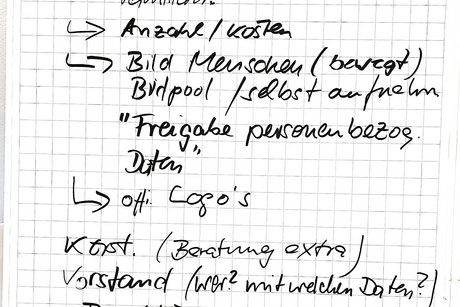 ↳ Anzahl / Kosten
↳ Bild Menschen (bewegt)
Bildpool / selbst aufnehm
"Freigabe personenbezog.
Daten"
↳ offi. Logo's
(Beratung extra)
Vorstand (wer? mit welchen Daten?)